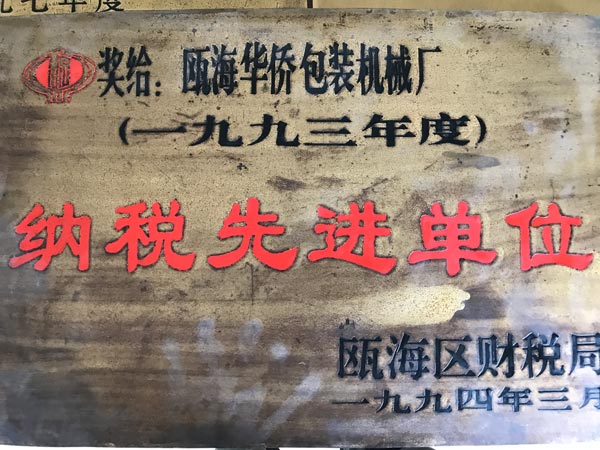 七年度
奖给：瓯海华侨包装机械厂
(一九九三年度)
纳税先进单位
瓯海区财税局
一九九四年三月